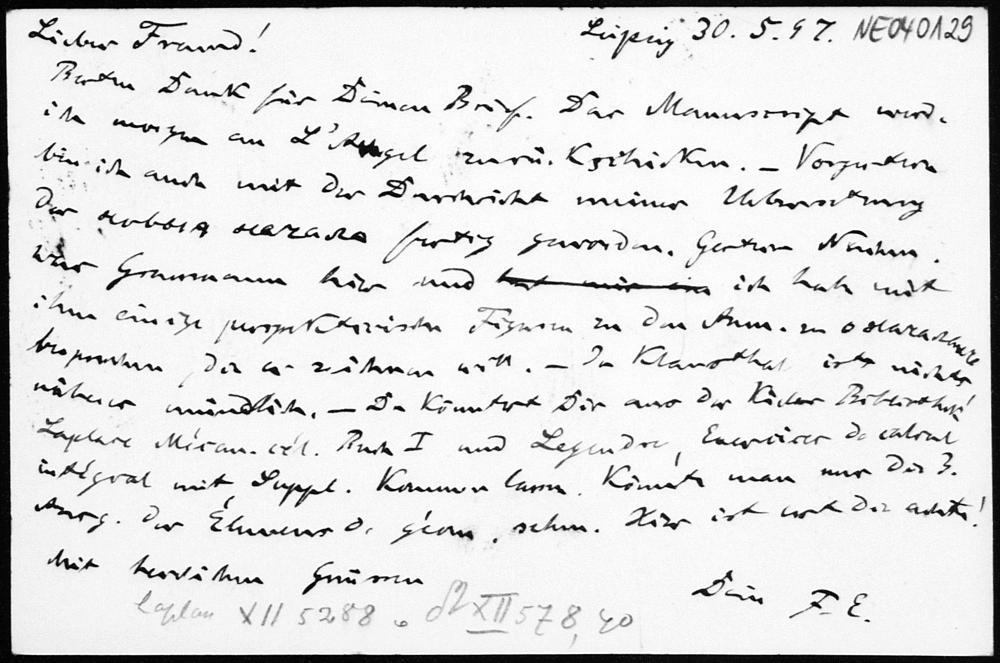 Lieber Freund! Leipzig 30. 5. 97. NE040129
Besten Dank für Deinen Brief. Das Manuscript werde
ich morgen an L'Angel zurückschicken. — Vorgestern
bin ich auch mit der Durchsicht meiner Uebersetzung
der новыя начала fertig geworden. Gestern Nachm.
war Grassmann hier und hat mir ein ich habe mit
ihm einige perspektivische Figuren zu den Anm. zu о началахъ
besprochen, die er zeichnen will. — In Klausthal ist nichts
näheres mündlich. — Du könntest Dir aus der Kieler Bibliothek
Laplace Mécan. cél. Buch I und Legendre, Exercices de calcul
intégral mit Suppl. kommen lassen. Könnte man nur die 3.
Ausg. der Élémens de géom. sehn. Hier ist erst die achte!
Mit herzlichen Grüssen
Dein F. E.
Laplace XII 5288 XII 578, 40